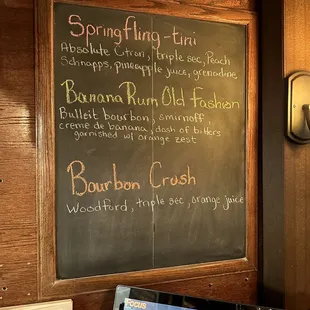 Springfling-tini
Absolute Citron, triple sec, Peach
Schnapps, pineapple juice, grenadine,
Banana Rum Old Fashion
Bulleit bourbon, smirnoff,
creme de banana, dash of bitters
garnished w/ orange zest
Bourbon Crush
Woodford, triple sec, orange juice
FOCUS